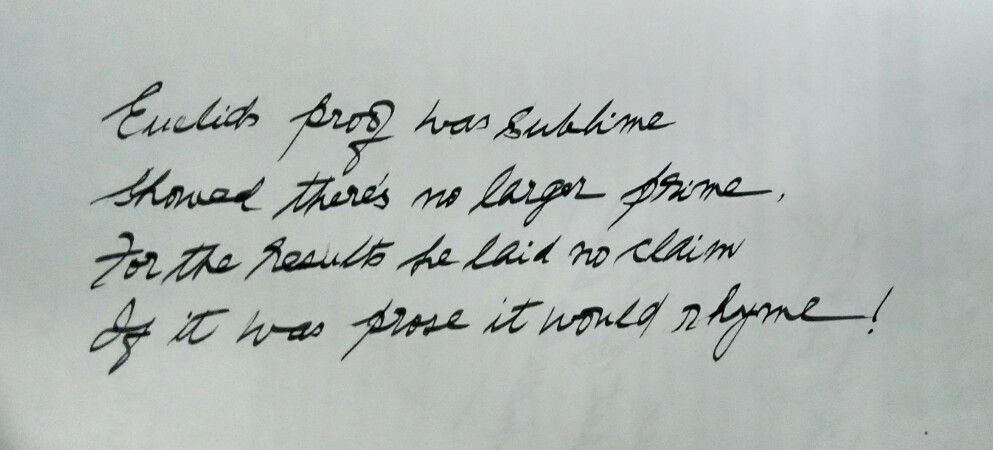 Euclids proof was sublime
Showed there's no larger prime.
For the results he laid no claim
If it was prose it would rhyme!